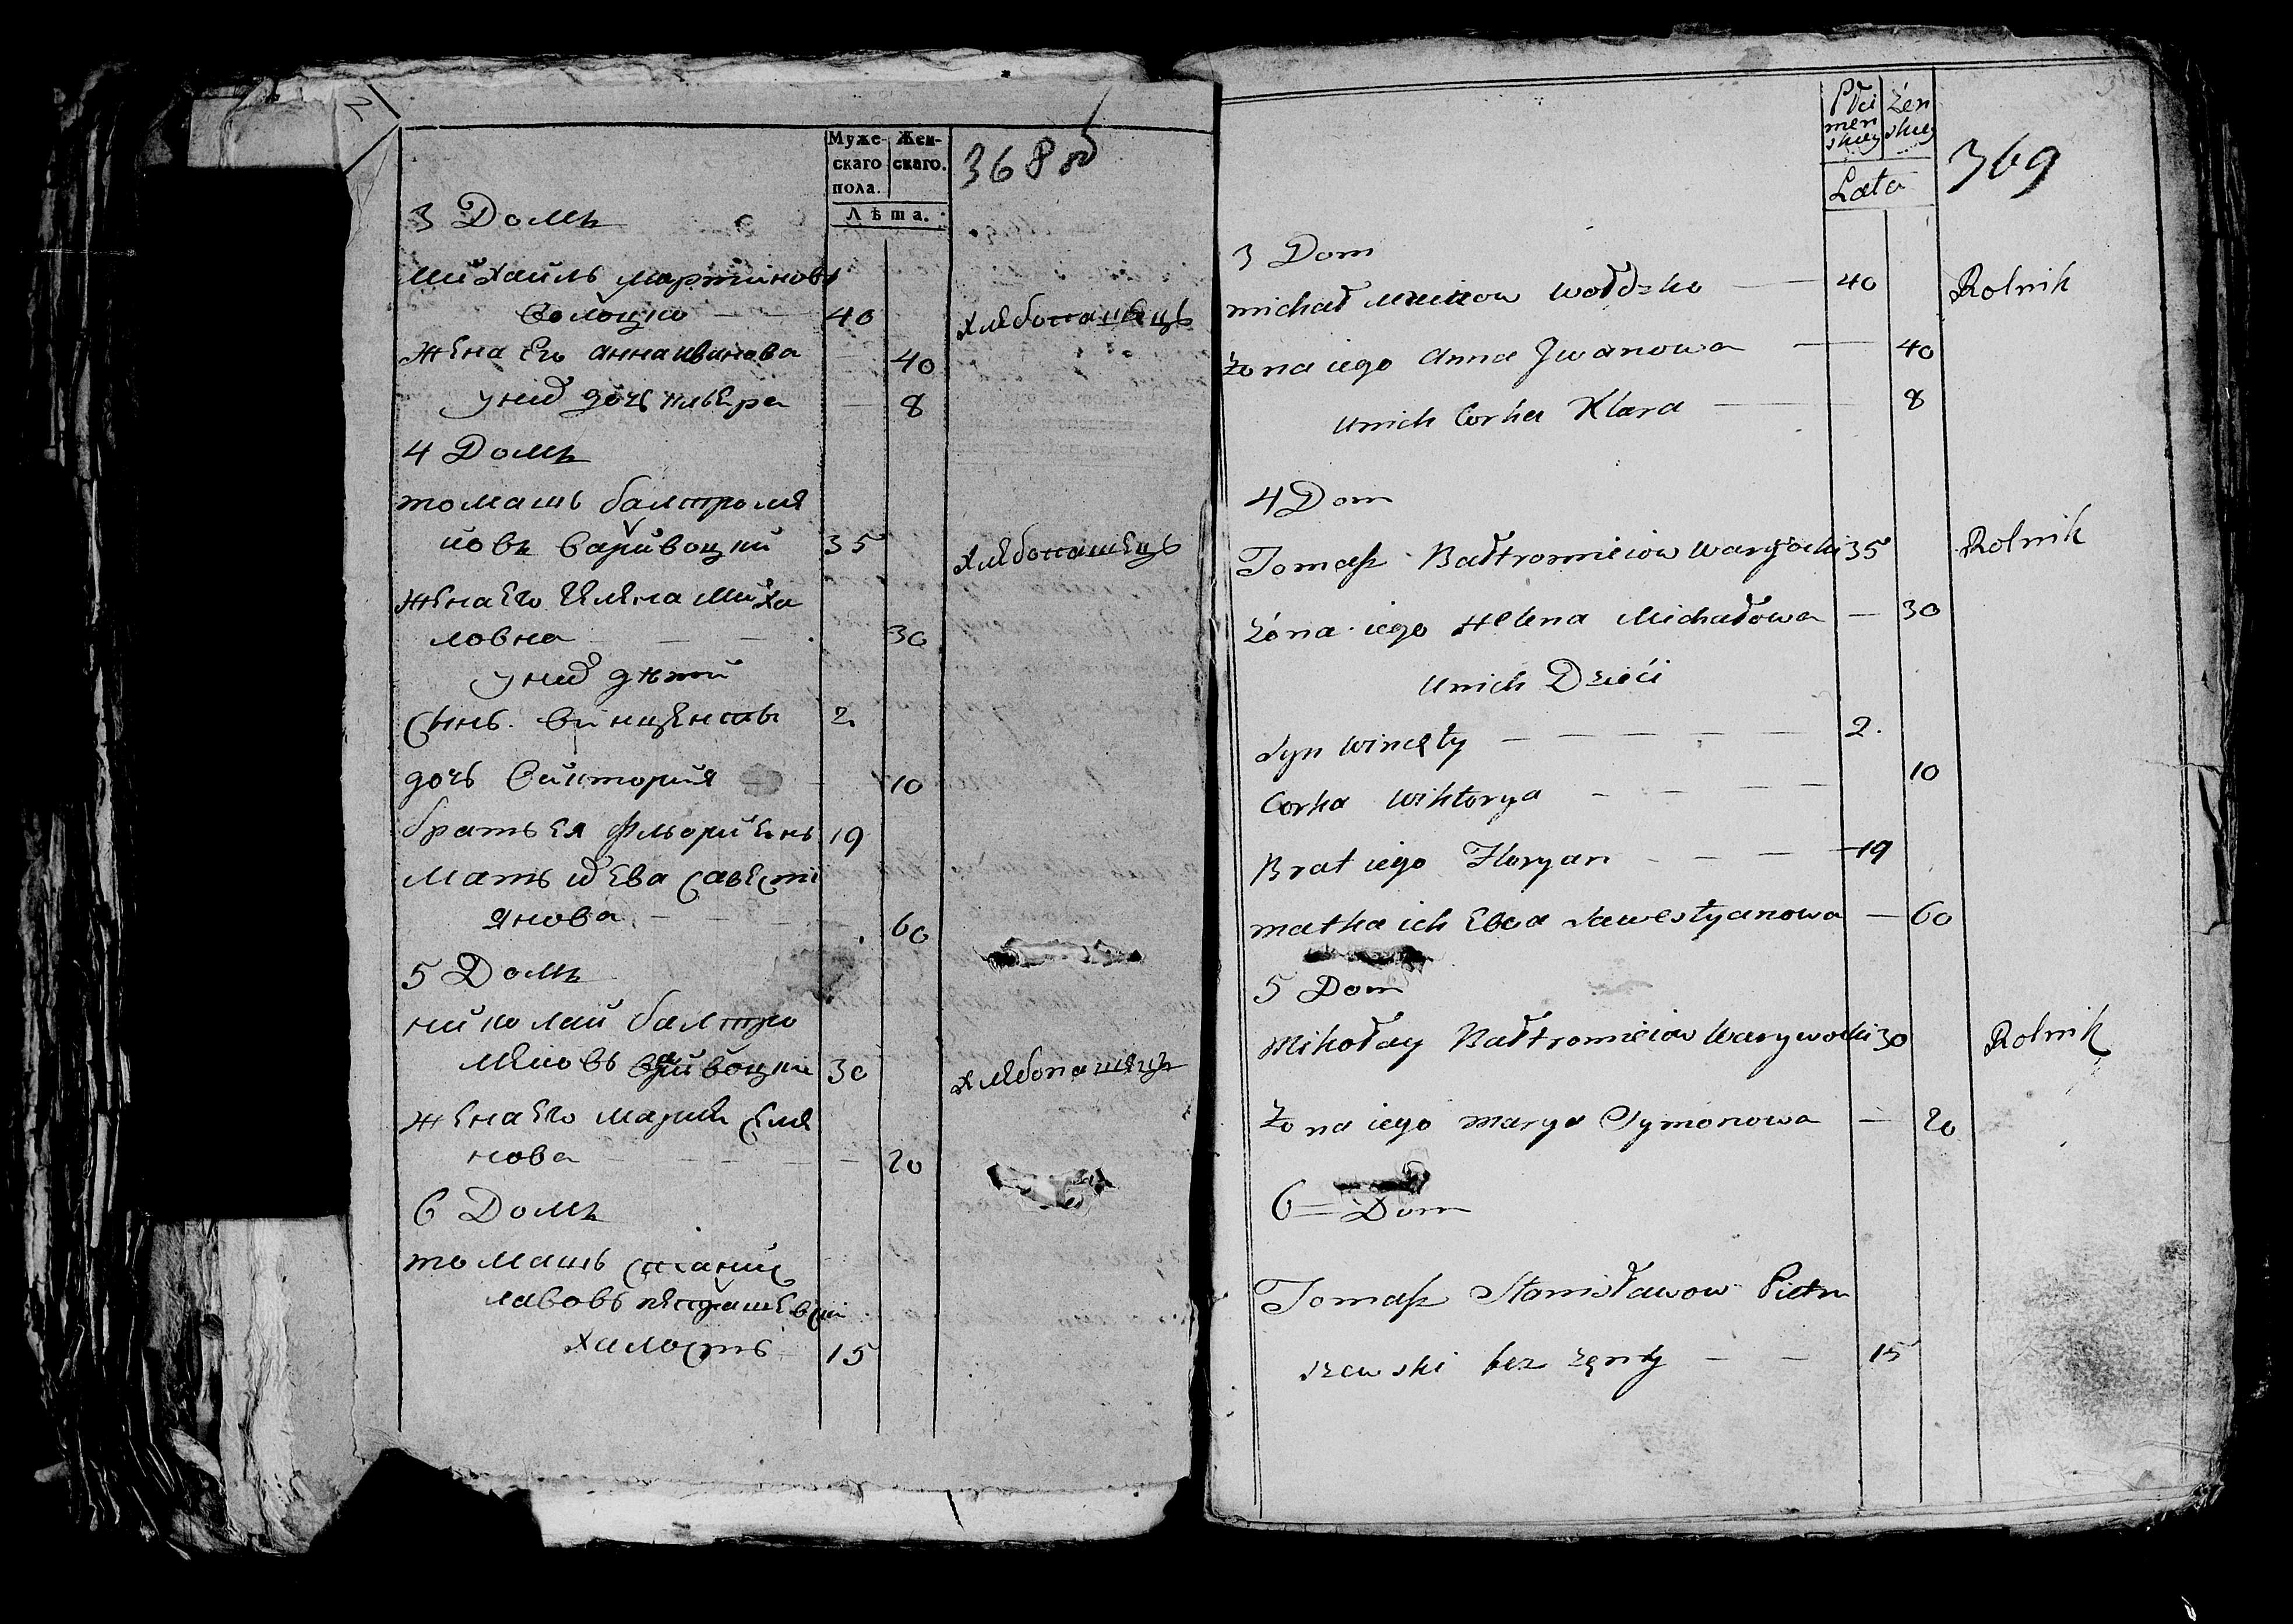 Муже-
скаго
пола.
Жен-
скаго.
Лѣта.
368 об
3 Домъ
Михаиль Мартинов
Волоцко 40 хлебопашецъ
жена Его анна иванова 40
у них дочь клЕра 8
4 Домъ
томашь балтромЕ
йовъ Варивоцкий 35 хлебопашЕцъ
жЕна Его ЕлЕна Миха
ловна 30
у них дѣти
сынъ. ВинцЕнты 2.
дочь Виктория 10
братъ Ея ФльориЕнь 19
Мать их Ева савЕсти
Янова 60
5 Домъ
николай балтро
мЕиовъ Варивоцки 30 хлебопашецъ
жЕна Его Мария сЕмЕ
нова 20
6 Домъ
томашь станис
лавовъ пЕтрашЕвски
халостъ 15
Płci
męn
skiey
Żen
skiey
Lata
369
3 Dom
michał Wołdzko 40 Rolnik
Żona iego Anna Jwanowa 40
Unich Corka Klara 8
4 Dom
Tomasz Bałtromieiow Warywocki 35 Rolnik
Żóna iego Helena Michałowa 30
Unich Dzieći
Syn Wincęty 2.
Corka Wiktorya 10
Brat iego Floryan 19
matka ich Ewa Sawestyanowa 60
5 Dom
Mikołay Bałtromieiow Warywocki 30 Rolnik
Żona iego Marya Symonowa 20
6 = Dom
Tomasz Stanisławow Pietra
szewski bez żęny 15